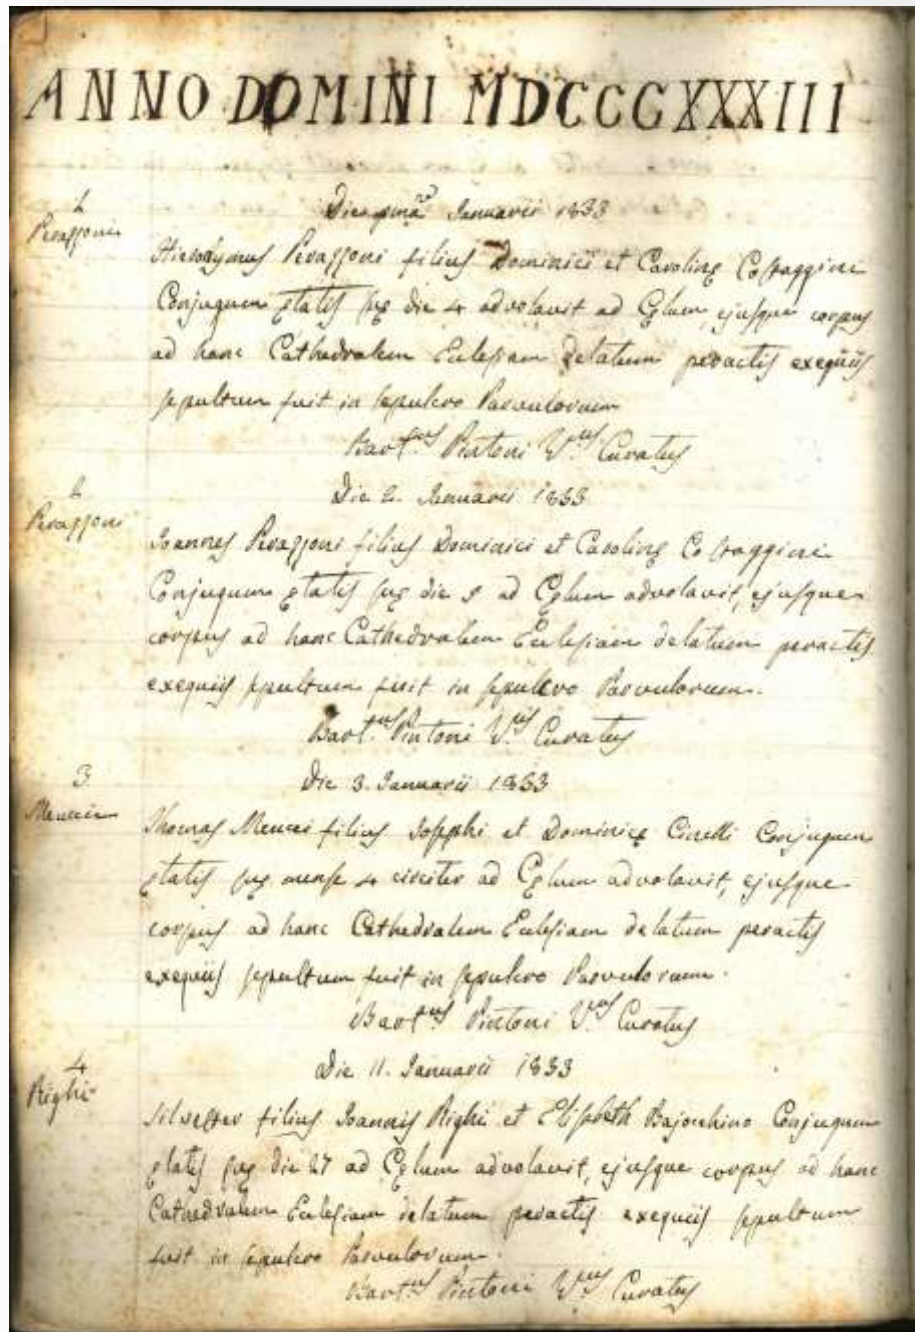 ANNO DOMINI MDCCCXXXIII
1
Perazzoni
Die prima Januarii 1833
Hieronymus Perazzoni filius Dominici et Carolinę
Conjugum ętatis suę die 4 advolavit ad Cęlum ejusque corpus
ad hanc Cathedralem Eclesiam delatum peractis exequiis
sepultum fuit in sepulcro Parvulorum
Bart.us Pintoni V.us Curatus
2
Perazzoni
Die 2. Januarii 1833
Joannes Perazzoni filius Dominici et Carolinę
Conjugum ętatis suę die ad Cęlum advolavit, ejusque
corpus ad hanc Cathedralem Eclesiam delatum peractis
exequiis sepultum fuit in sepulcro Parvulorum.
Bart.us Pintoni V.us Curatus
3
Meucci
Die 3. Januarii 1833
Thomas Meucci filius Josephi et Dominicę Cinelli Conjugum
ętatis suę mense 4 circiter ad Cęlum advolavit, ejusque
corpus ad hanc Cathedralem Eclesiam delatum peractis
exequiis sepultum fuit in sepulcro Parvulorum.
Bart.us Pintoni V.us Curatus
4
Righi
Die 11. Januarii 1833
Silvester filius Joannis Righi et Elisabeth Bajocchino Conjugum
ętatis suę die 27 ad Cęlum advolavit, ejusque corpus ad hanc
Cathedralem Eclesiam delatum peractis exequiis sepultum
fuit in sepulcro Parvulorum.
Bart.us Pintoni V.us Curatus